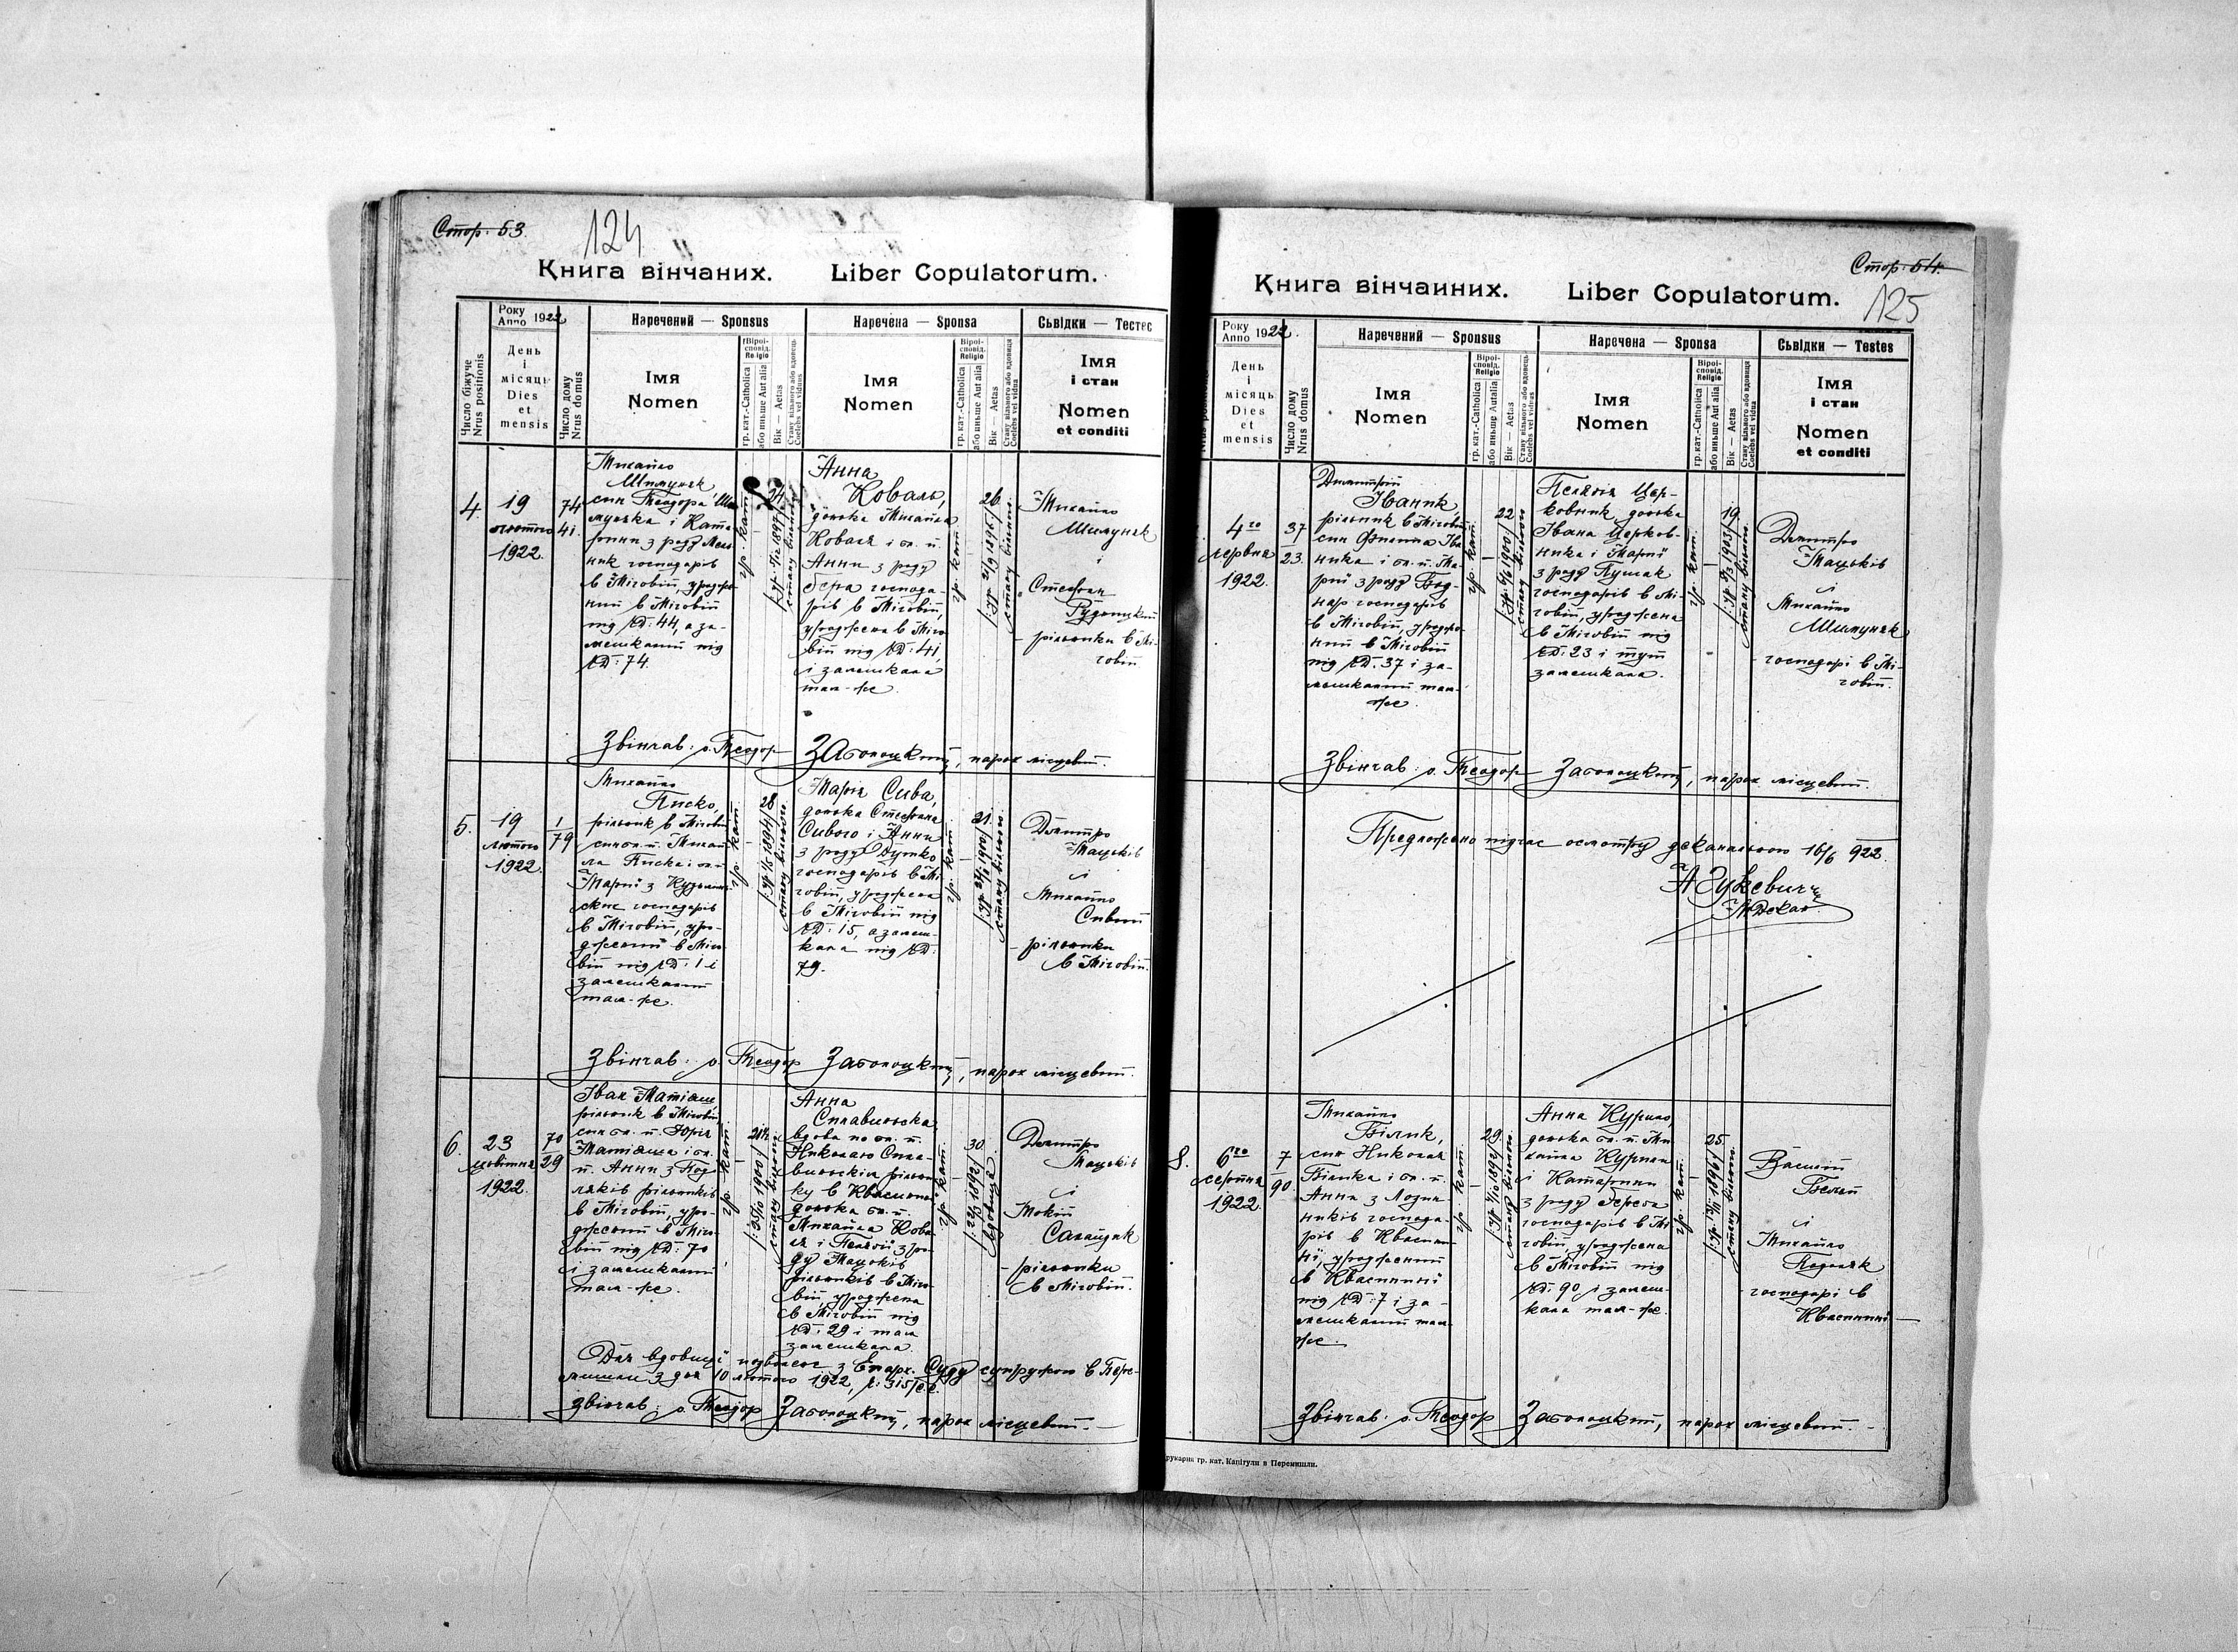 Стор. 53.
124
Книга вінчаних. Liber Copulatorum.
Року Anno 1922
Наречений — Sponsus
Наречена — Sponsa
Сьвідки — Тестес
Число біжуче Nrus positionis
День і місяць Dies et mensis
Число дому Nrus domus
ІМЯ Nomen
Віроісповід. Religio
гр. кат.-Catholica
або иньше Aut alia
Вік — Aetas
Стану вільного або вдовець Coelebs vel viduus
ІМЯ Nomen
Віроісповід. Religio
гр. кат.-Catholica
або иньше Aut alia
Вік — Aetas
Стану вільного або вдовиця Coelebs vel vidua
ІМЯ і стан Nomen et conditi
4.
19
лютого
1922.
74
41.
Михайло
Шимуняк
син Теодора Ши-
муняка і Кате-
рини з роду Мель-
ник господарів
в Міговій, уродже-
ний в Міговій
під чД: 44, а за-
мешканий під
чД: 74.
гр. кат.
24
стану вільного
Анна
Коваль,
донька Михайла
Коваля і бл. п.
Анни з роду
господа-
рів в Міговій,
уроджена в Міго-
вій під чД: 41,
і замешкала
там-же.
гр. кат.
26
стану вільного
Михайло
Шимуняк
і
Стефан
- рільники в Мі-
говій
Звінчав: о. Теодор Заболоцкий, парох місцевий.
5.
19
лютого
1922.
1
79
Михайло
Писко,
рільник в Міговій
син бл. п. Михай-
ла Писка і бл. п.
Марії з
господарів
в Міговій, уро-
джений в Міго-
вій під чД: 1 і
замешканий
там-же.
гр. кат.
28
стану вільного
Марія Сива,
донька Стефана
Сивого і Анни
з роду Дутко
господарів в Мі-
говій, уроджена
в Міговій під
чД: 15, а замеш-
кала під чД:
79.
гр. кат.
21.
стану вільного
Дмитро
Мацьків
і
Михайло
Сивий
- рільники
в Міговій.
Звінчав: о. Теодор Заболоцкий, парох місцевий.
6.
23
цьвітня
1922.
70
29
Іван Матіаш
рільник в Міговій
син бл. п. Юрія
Матіаша і бл.
п. Анни з Под-
ляків рільників
в Міговій, уро-
джений в Міго-
вій під чД: 70
і замешканий
там-же.
гр. кат.
21½
стану вільного
Анна
Сплавиньска
вдова по бл. п.
Николаю Спла-
виньскім рільни-
ку в Квасинині
донька бл. п.
Михайла Кова-
ля і Пелягії з ро-
ду Мацьків
рільників в Міго-
вій, уроджена
в Міговій під
чД: 29 і там
замешкала.
гр. кат.
30
вдовиця
Дмитро
Мацьків
і
Мокій
Салащук
- рільники
в Міговій.
Для вдовиці позволенє з Епарх. Суду супружого в Пере-
мишли з дня 10 лютого 1922, ч: 315/с.с.
Звінчав: о. Теодор Заболоцкий, парох місцевий.
Стор. 54.
125
Книга вінчаиних. Liber Copulatorum.
Року Anno 1922.
Наречений — Sponsus
Наречена — Sponsa
Сьвідки — Testes
День і місяць Dies et mensis
Число дому Nrus domus
ІМЯ Nomen
Віроісповід. Religio
гр. кат.-Catholica
або иньше Aut alia
Вік — Aetas
Стану вільного або вдовець Coelebs vel viduus
ІМЯ Nomen
Віроісповід. Religio
гр. кат.-Catholica
або иньше Aut alia
Вік — Aetas
Стану вільного або вдовиця Coelebs vel vidua
ІМЯ і стан Nomen et conditi
4го
червня
1922.
37
23.
Димитрій
Іваник,
рільник в Міговій
син Филипа Іва-
ника і бл. п. Ма-
рії з роду Бод-
нар господарів
в Міговій, уродже-
ний в Міговій
під чД: 37 і за-
мешканий там-
же.
гр. кат.
22
стану вільного
Пелягія Цер-
ковник донька
Івана Церков-
ника і Марії
з роду Пушак
господарів в Мі-
говій, уроджена
в Міговій під
чД: 23 і тут
замешкала.
гр. кат.
19
стану вільного
Дмитро
Мацьків
і
Михайло
Шимуняк
- господарі в Мі-
говій.
Звінчав: о. Теодор Заболоцкий, парох місцевий.
Предложено підчас осмотру деканального 16/6 922.
8.
6го
серпня
1922.
7
90
Михайло
Білик,
син Николая
Білика і бл. п.
Анни з Лозин-
ників господа-
рів в Квасини-
ні, уроджений
в Квасинині
під чД: 7 і за-
мешканий там-
же.
гр. кат.
29.
стану вільного
Анна Курило,
донька бл. п. Ми-
хайла Курила
і Катарини
з роду
господарів в Мі-
говій, уроджена
в Міговій під
чД: 90 і замеш-
кала там-же.
гр. кат.
25.
стану вільного
Василий
і
Михайло
Подоляк
- господарі в
Квасинині
Звінчав: о. Теодор Заболоцкий, парох місцевий.
гр. кат. Капітули в Перемишли.